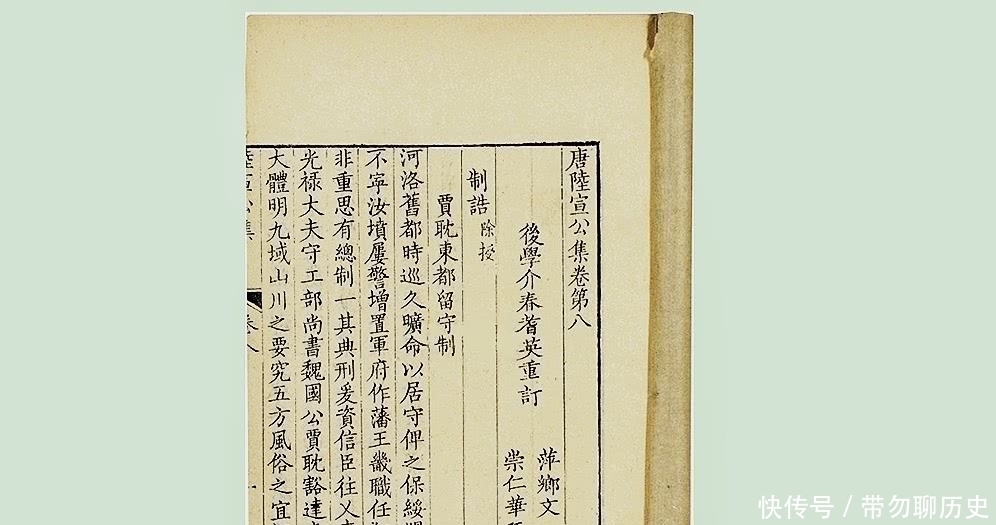 唐陸宣公集卷第八
後學介春耆英重訂
萍鄉文
崇仁華
制誥除授
賈耽東都留守制
河洛舊都時巡久曠命以居守俾之保綏
不寧汝墳屢警增置軍府作藩王畿職任
非重思有總制一其典刑爰資信臣往乂
光祿大夫守工部尚書魏國公賈耽豁達
大體明九域山川之要究五方風俗之宜
陸宣公集
卷八
快传号/带勿聊历史